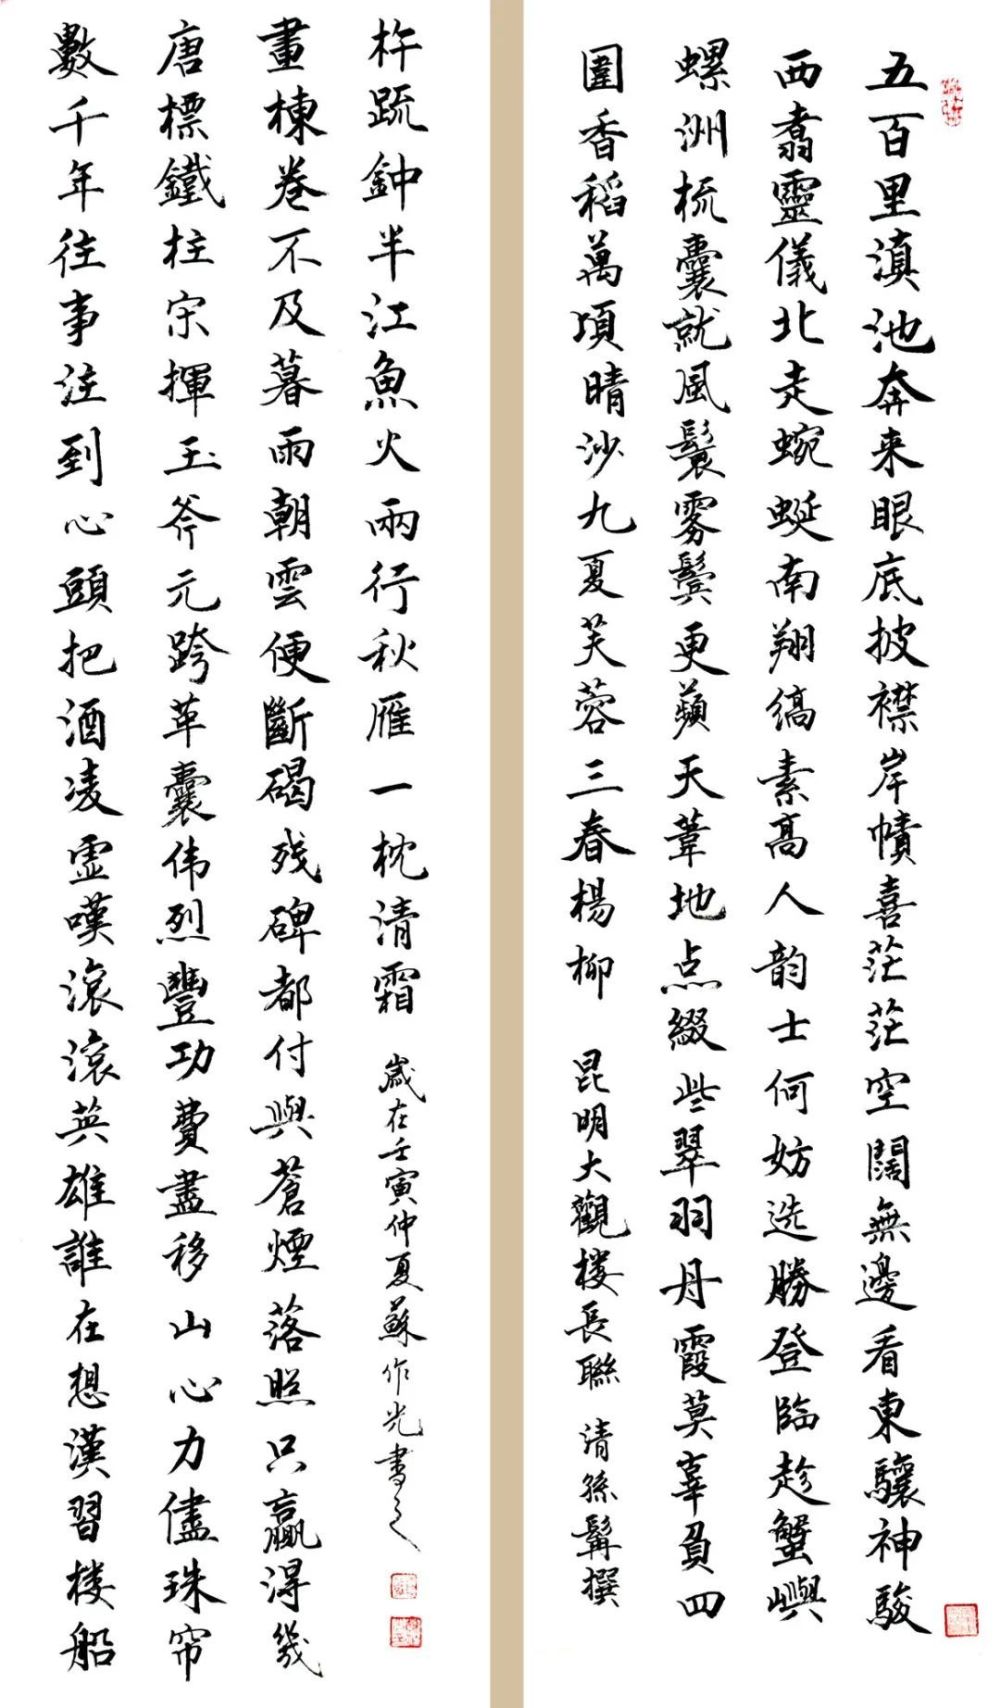 五百里滇池奔来眼底披襟岸幘喜茫茫空闊無邊看東驤神駿
西翥靈儀北走蜿蜒南翔縞素高人韵士何妨选勝登臨趁蟹嶼
螺洲梳囊就風鬟雾鬓更蘋天葦地点綴些翠羽丹霞莫辜負四
圍香稻萬頃晴沙九夏芙蓉三春楊柳 昆明大觀楼長聯 清孫髯撰
數千年往事注到心頭把酒凌虚嘆滾滾英雄誰在想漢習楼船
唐標鐵柱宋揮玉斧元跨革囊伟烈豐功費盡移山心力儘珠帘
畫棟卷不及暮雨朝雲便斷碣残碑都付與蒼煙落照只贏得幾
杵疏鈡半江魚火兩行秋雁一枕清霜 歲在壬寅仲夏蘇作光書之